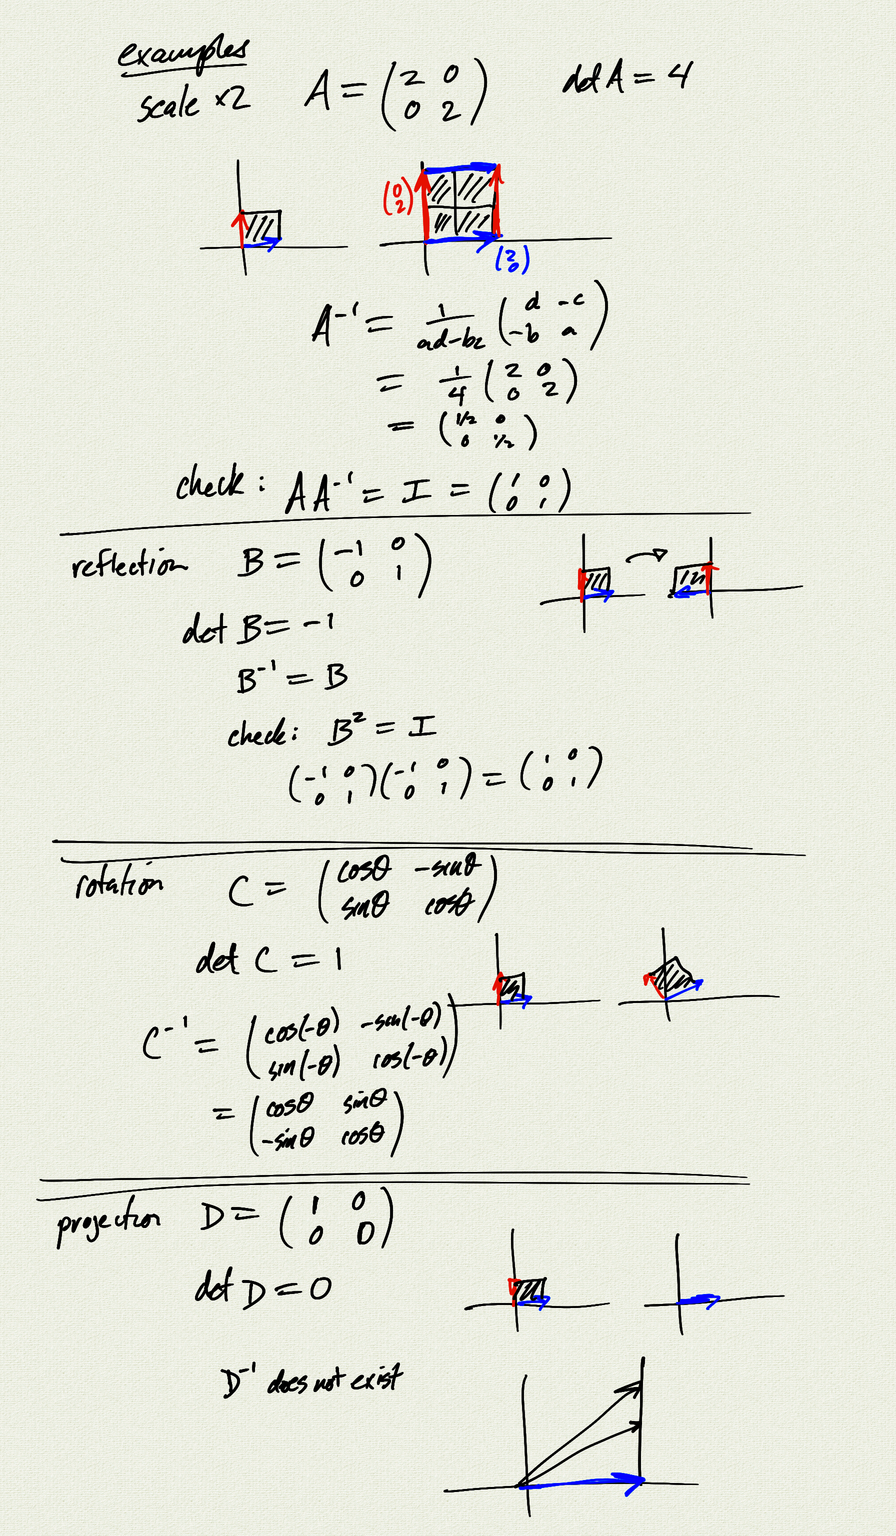 examples
scale ×2 A = (2 0; 0 2) det A = 4
(0; 2)
(2; 0)
A⁻¹ = 1/(ad-bc) (d -c; -b a)
= 1/4 (2 0; 0 2)
= (1/2 0; 0 1/2)
check: AA⁻¹ = I = (1 0; 0 1)
reflection B = (-1 0; 0 1)
det B = -1
B⁻¹ = B
check: B² = I
(-1 0; 0 1)(-1 0; 0 1) = (1 0; 0 1)
rotation C = (cosθ -sinθ; sinθ cosθ)
det C = 1
C⁻¹ = (cos(-θ) -sin(-θ); sin(-θ) cos(-θ))
= (cosθ sinθ; -sinθ cosθ)
projection D = (1 0; 0 0)
det D = 0
D⁻¹ does not exist